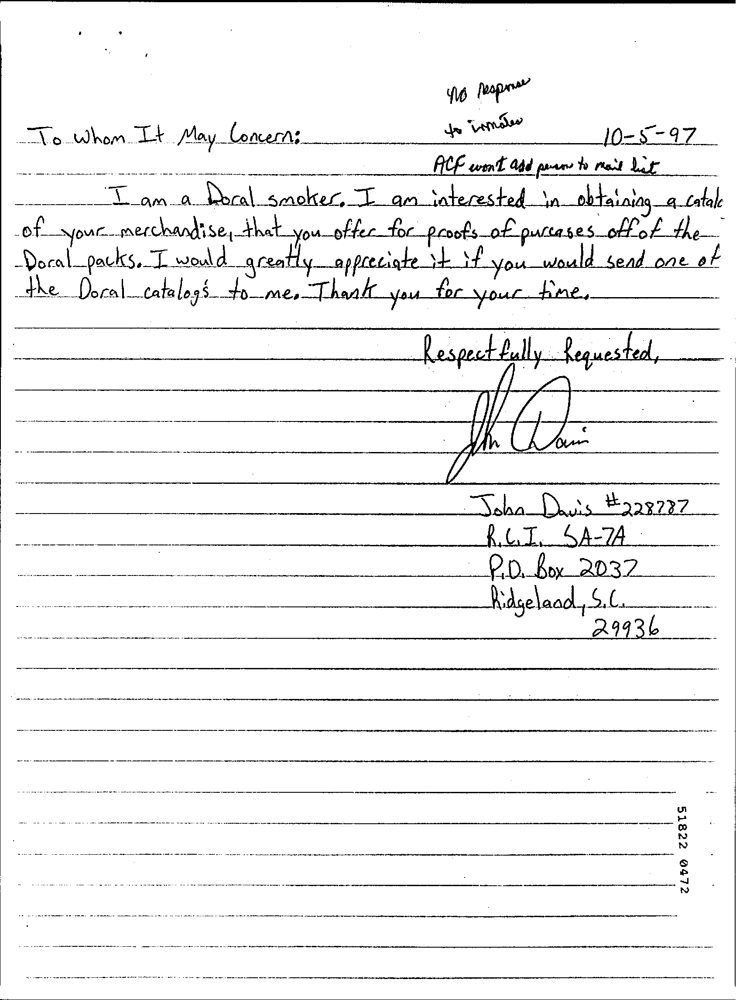 no response
to inmates
To Whom It May Concern: 10-5-97
ACF won't add person to mail list
I am a Doral smoker. I am interested in obtaining a catalo
of your merchandise, that you offer for proofs of purcases off of the
Doral packs. I would greatly appreciate it if you would send one of
the Doral catalog's to me. Thank you for your time.
Respectfully Requested,
John Davis
John Davis #228787
R.C.I. SA-7A
P.O. Box 2037
Ridgeland, S.C.
29936
51822 0472